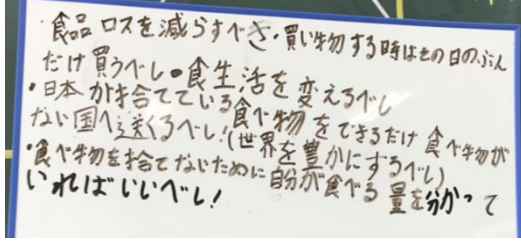 ・食品ロスを減らすべき・買い物する時はその日のぶん
だけ買うべし・食生活を変えるべし
・日本が捨てている食べ物をできるだけ食べ物が
ない国へ送くるべし!(世界を豊かにするべし)
・食べ物を捨てないために自分が食べる量を分かって
いればいいべし!